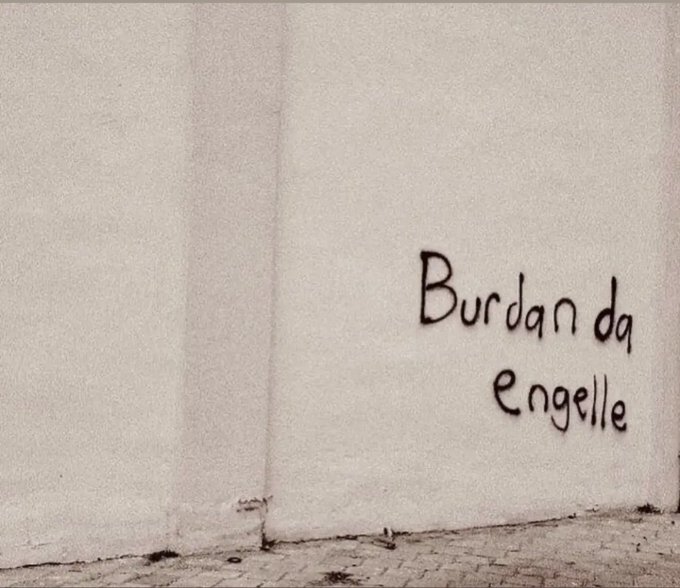 Burdan da
engelle